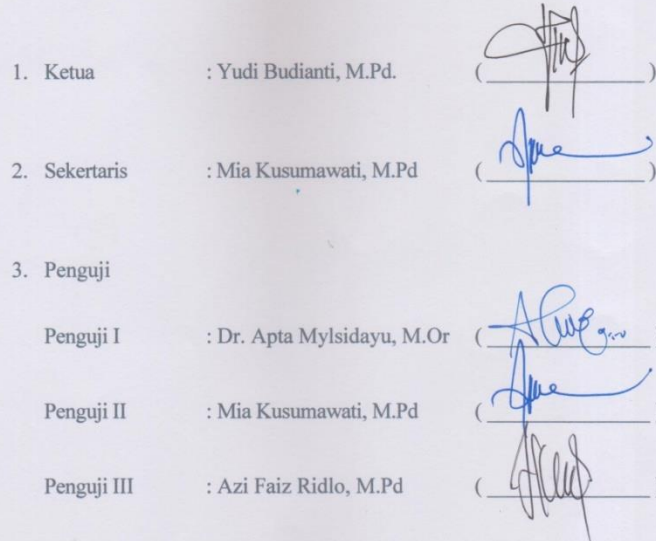 1. Ketua : Yudi Budianti, M.Pd. ( )
2. Sekertaris : Mia Kusumawati, M.Pd ( )
3. Penguji
Penguji I : Dr. Apta Mylsidayu, M.Or (
Penguji II : Mia Kusumawati, M.Pd (
Penguji III : Azi Faiz Ridlo, M.Pd (